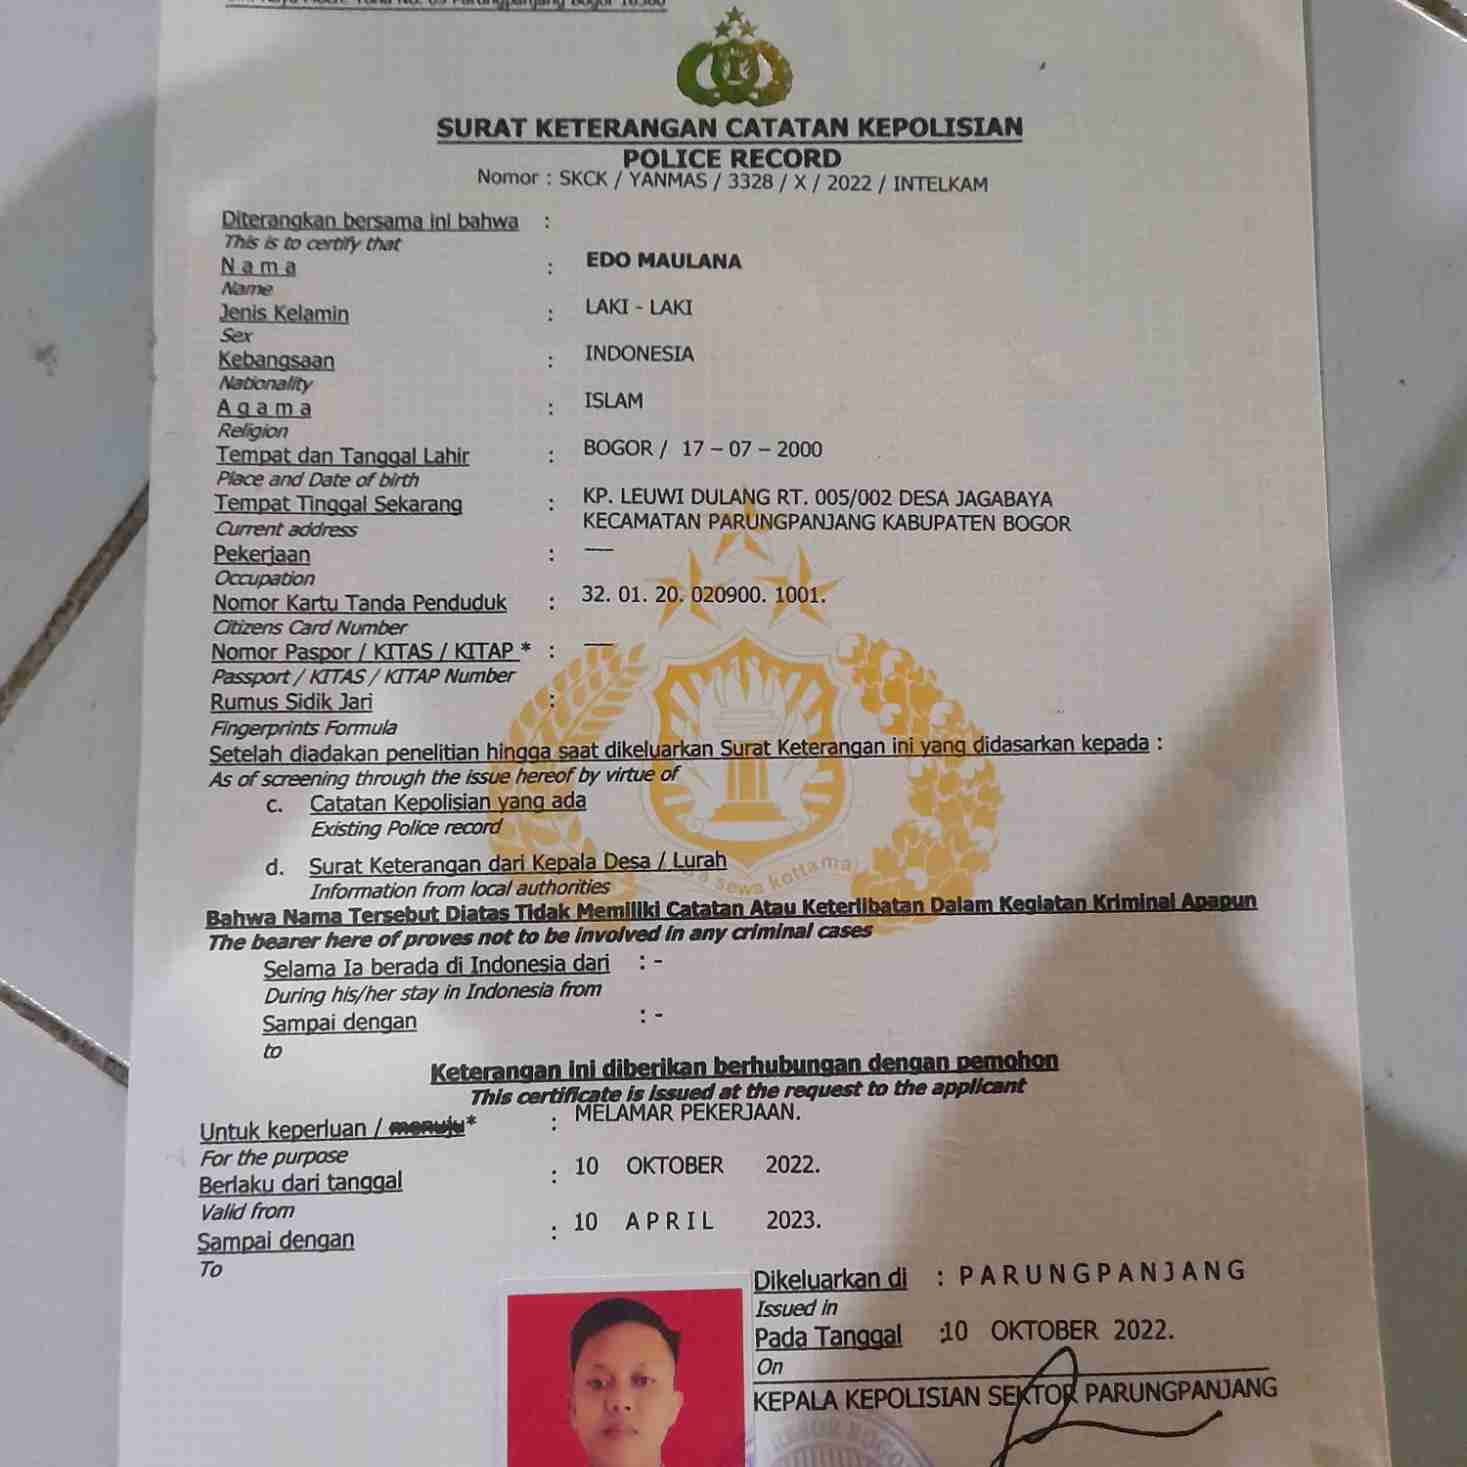 SURAT KETERANGAN CATATAN KEPOLISIAN
POLICE RECORD
Nomor : SKCK / YANMAS / 3328 / X / 2022 / INTELKAM
Diterangkan bersama ini bahwa :
This is to certify that
N a m a : EDO MAULANA
Name
Jenis Kelamin : LAKI - LAKI
Sex
Kebangsaan : INDONESIA
Nationality
A g a m a : ISLAM
Religion
Tempat dan Tanggal Lahir : BOGOR / 17 – 07 – 2000
Place and Date of birth
Tempat Tinggal Sekarang : KP. LEUWI DULANG RT. 005/002 DESA JAGABAYA
Current address KECAMATAN PARUNGPANJANG KABUPATEN BOGOR
Pekerjaan : —
Occupation
Nomor Kartu Tanda Penduduk : 32. 01. 20. 020900. 1001.
Citizens Card Number
Nomor Paspor / KITAS / KITAP * : —
Passport / KITAS / KITAP Number
Rumus Sidik Jari :
Fingerprints Formula
Setelah diadakan penelitian hingga saat dikeluarkan Surat Keterangan ini yang didasarkan kepada :
As of screening through the issue hereof by virtue of
c. Catatan Kepolisian yang ada
Existing Police record
d. Surat Keterangan dari Kepala Desa / Lurah
Information from local authorities
sewa kottama
Bahwa Nama Tersebut Diatas Tidak Memiliki Catatan Atau Keterlibatan Dalam Kegiatan Kriminal Apapun
The bearer here of proves not to be involved in any criminal cases
Selama Ia berada di Indonesia dari : -
During his/her stay in Indonesia from
Sampai dengan : -
to
Keterangan ini diberikan berhubungan dengan pemohon
This certificate is issued at the request to the applicant
Untuk keperluan / menuju* : MELAMAR PEKERJAAN.
For the purpose
Berlaku dari tanggal : 10 OKTOBER 2022.
Valid from
Sampai dengan : 10 A P R I L 2023.
To
Dikeluarkan di : P A R U N G P A N J A N G
Issued in
Pada Tanggal :10 OKTOBER 2022.
On
KEPALA KEPOLISIAN SEKTOR PARUNGPANJANG